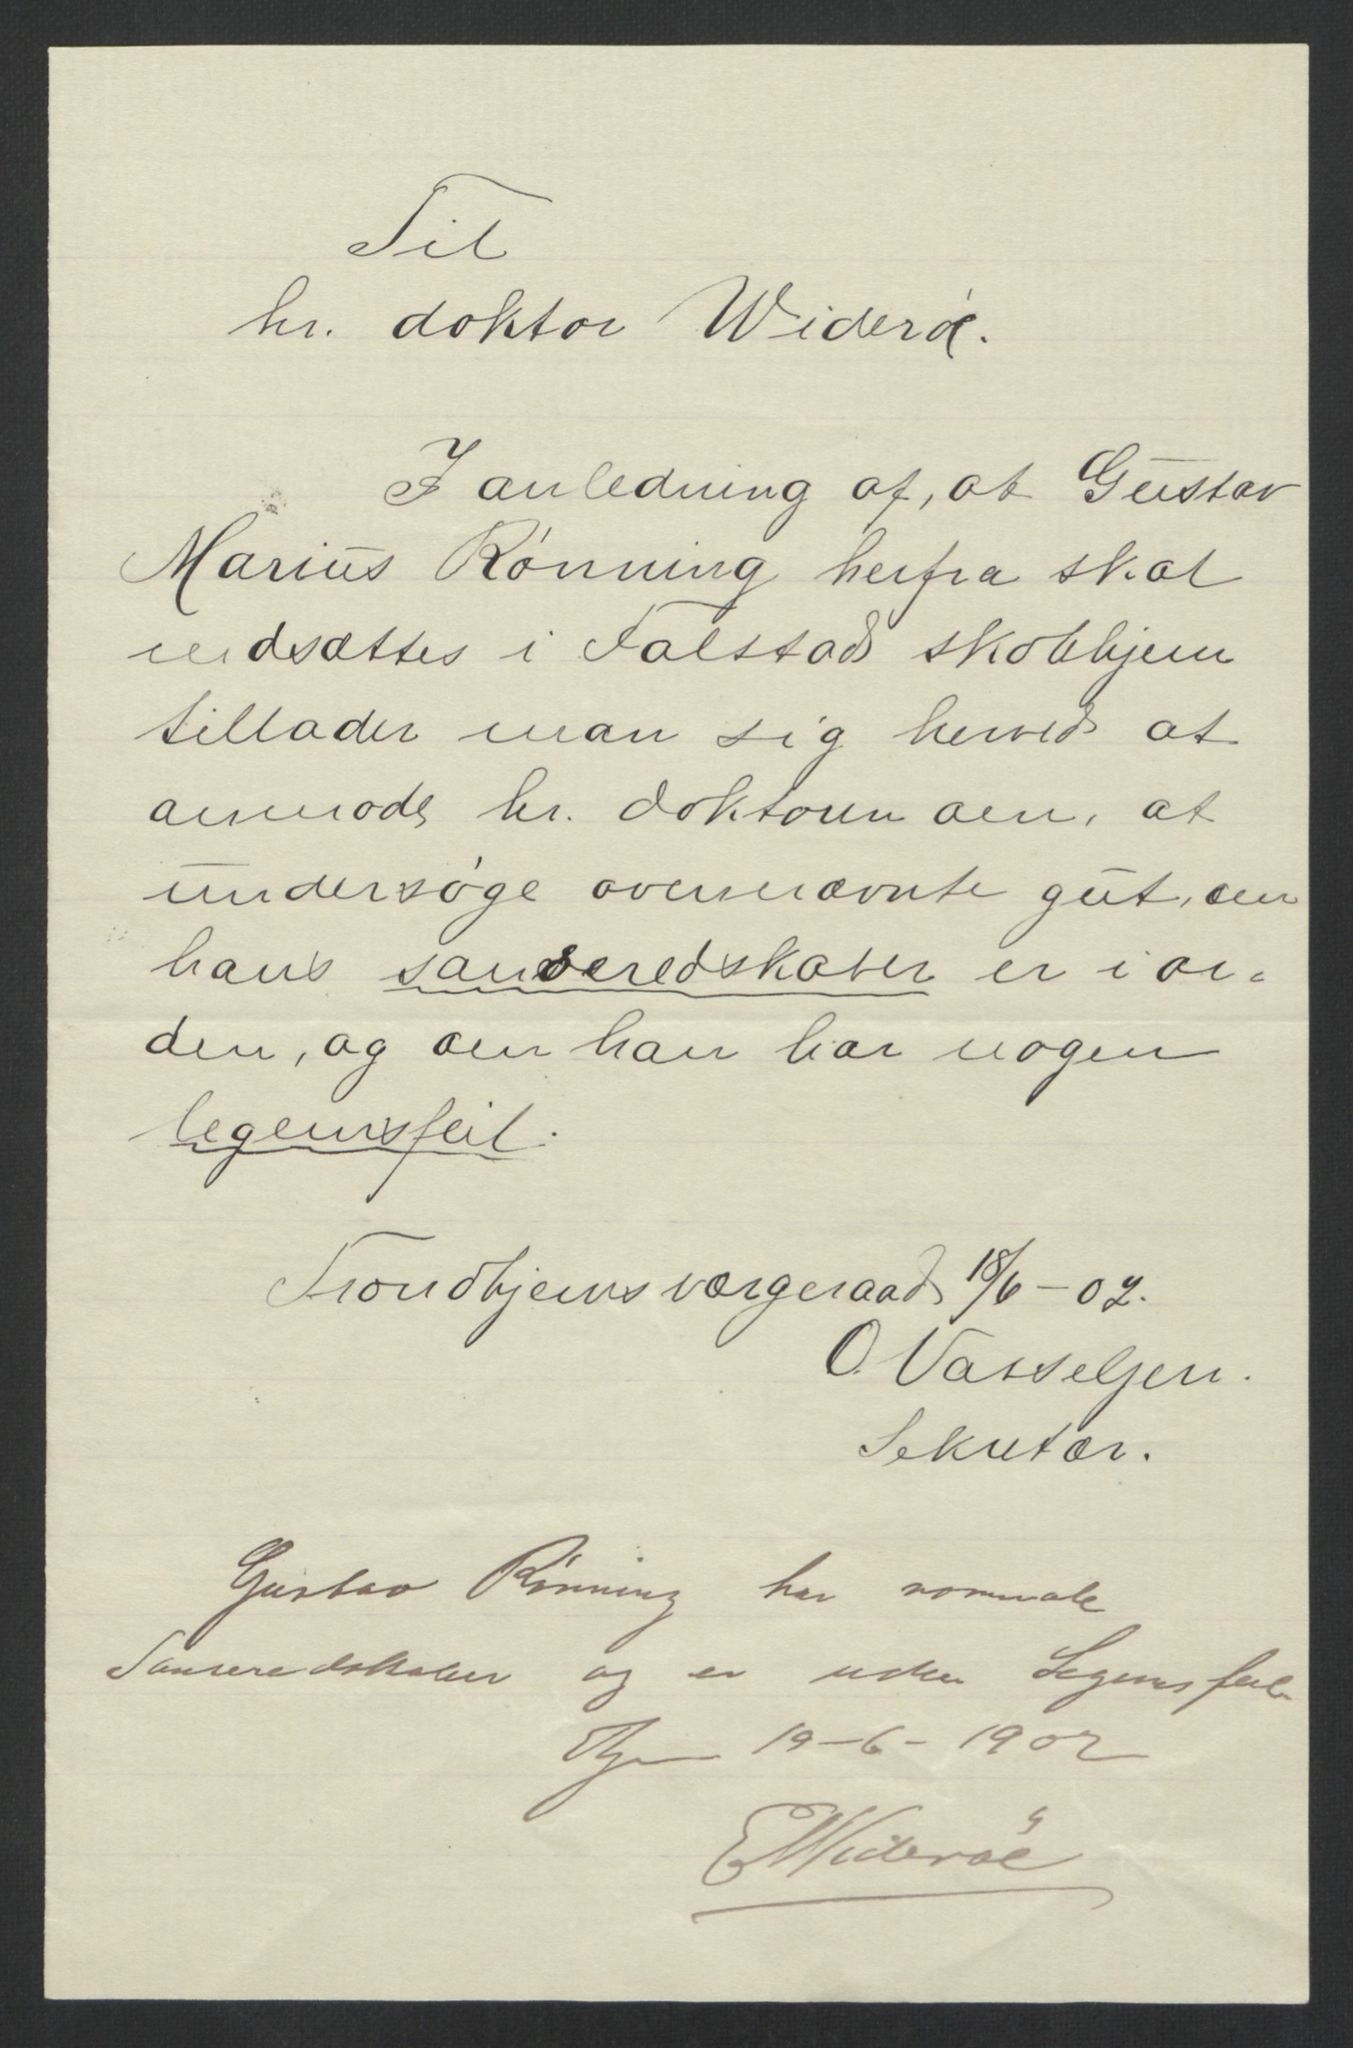 Til
hr. doktor Widerøe.
I anledning af, at Gustav
Marius Rønning herfra skal
indsættes i Falstad skolehjem
tillader man sig herved at
anmode hr. doktoren om, at
undersøge ovennævnte gut, om
hans sanseredskaber er i or-
den, og om han har nogen
legemsfeil.
Trondhjems værgeraad 18/6 – 02.
O. Vasseljen.
Sekretær.
Gustav Rønning har normale
Sanseredskaber og er uden Legemsfeil.
Thjem 19-6-1902
E Widerøe